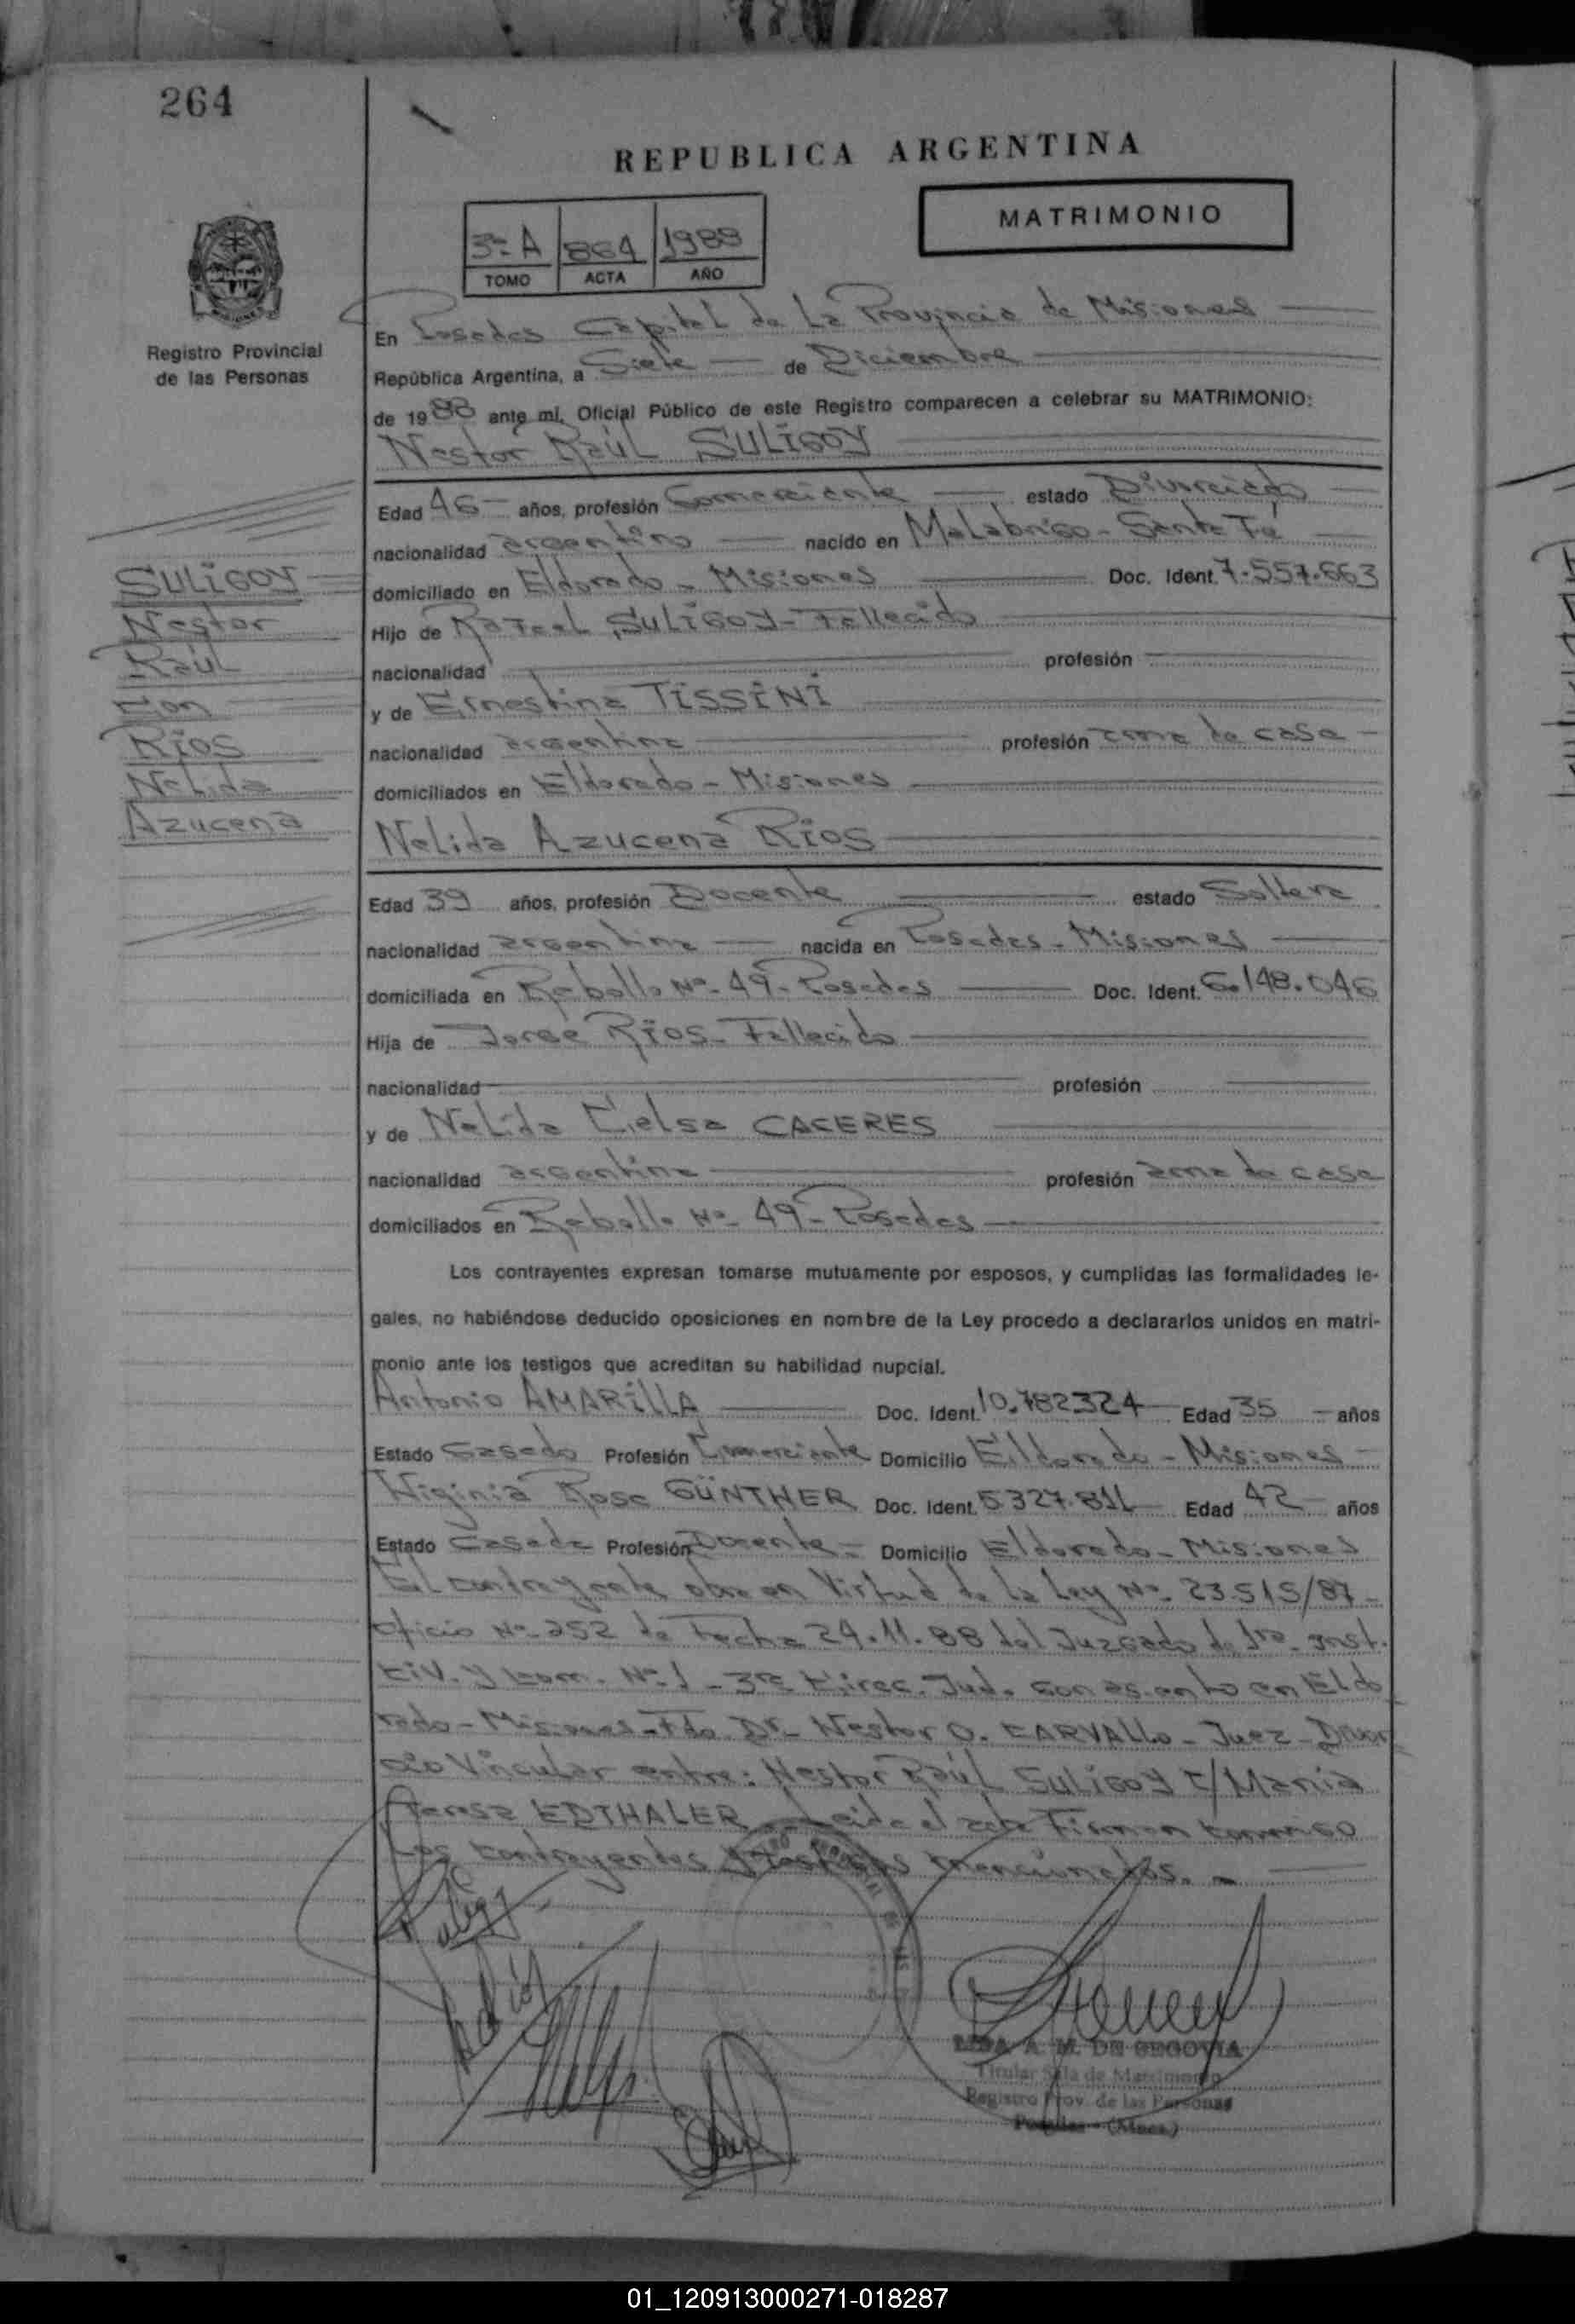 264
REPUBLICA ARGENTINA
MATRIMONIO
3º A 864 1988
TOMO ACTA AÑO
Registro Provincial
de las Personas
En Posadas Capital de La Provincia de Misiones
República Argentina, a Siete de Diciembre
de 1988 ante mí, Oficial Público de este Registro comparecen a celebrar su MATRIMONIO:
Nestor Raúl SULIGOY
Edad 46 años, profesión Comerciante estado Divorciado
nacionalidad argentino nacido en Malabrigo - Santa Fé
domiciliado en Eldorado - Misiones Doc. Ident. 7.557.663
Hijo de Rafael SULIGOY - Fallecido
nacionalidad profesión
y de Ernestina TISSINI
nacionalidad argentina profesión ama de casa
domiciliados en Eldorado - Misiones
SULIGOY
Nestor
Raúl
Con
RIOS
Nelida
Azucena
Nelida Azucena RIOS
Edad 39 años, profesión Docente estado Soltera
nacionalidad argentina nacida en Posadas - Misiones
domiciliada en Rebollo Nº 49 - Posadas Doc. Ident. 6.148.046
Hija de Jorge RIOS - Fallecido
nacionalidad profesión
y de Nelida Celsa CACERES
nacionalidad argentina profesión ama de casa
domiciliados en Rebollo Nº 49 - Posadas
Los contrayentes expresan tomarse mutuamente por esposos, y cumplidas las formalidades le-
gales, no habiéndose deducido oposiciones en nombre de la Ley procedo a declararlos unidos en matri-
monio ante los testigos que acreditan su habilidad nupcial.
Antonio AMARILLA Doc. Ident. 10.782324 Edad 35 años
Estado Casado Profesión Comerciante Domicilio Eldorado - Misiones
Higinia Rosa GÜNTHER Doc. Ident. 5327.811 Edad 42 años
Estado Casada Profesión Docente Domicilio Eldorado - Misiones
El contrayente obra en Virtud de la Ley Nº 23.515/87 -
Oficio Nº 252 de Fecha 24.11.88 del Juzgado de 1ra. Inst.
Civ. y Com. Nº 1 - 3ra Circ. Jud. con asiento en Eldo
rado - Misiones - Fdo. Dr. Nestor O. CARVALLO - Juez - Divor
cio Vincular entre: Nestor Raúl SULIGOY C/ Maria
Teresa EDTHALER. Leida el acta Firman conmigo
Los contrayentes y testigos mencionados. -
A. M. DE SEGOVIA
Titular Sala de Matrimonio
Registro Prov. de las Personas
Posadas - (Mnes.)
01_120913000271-018287